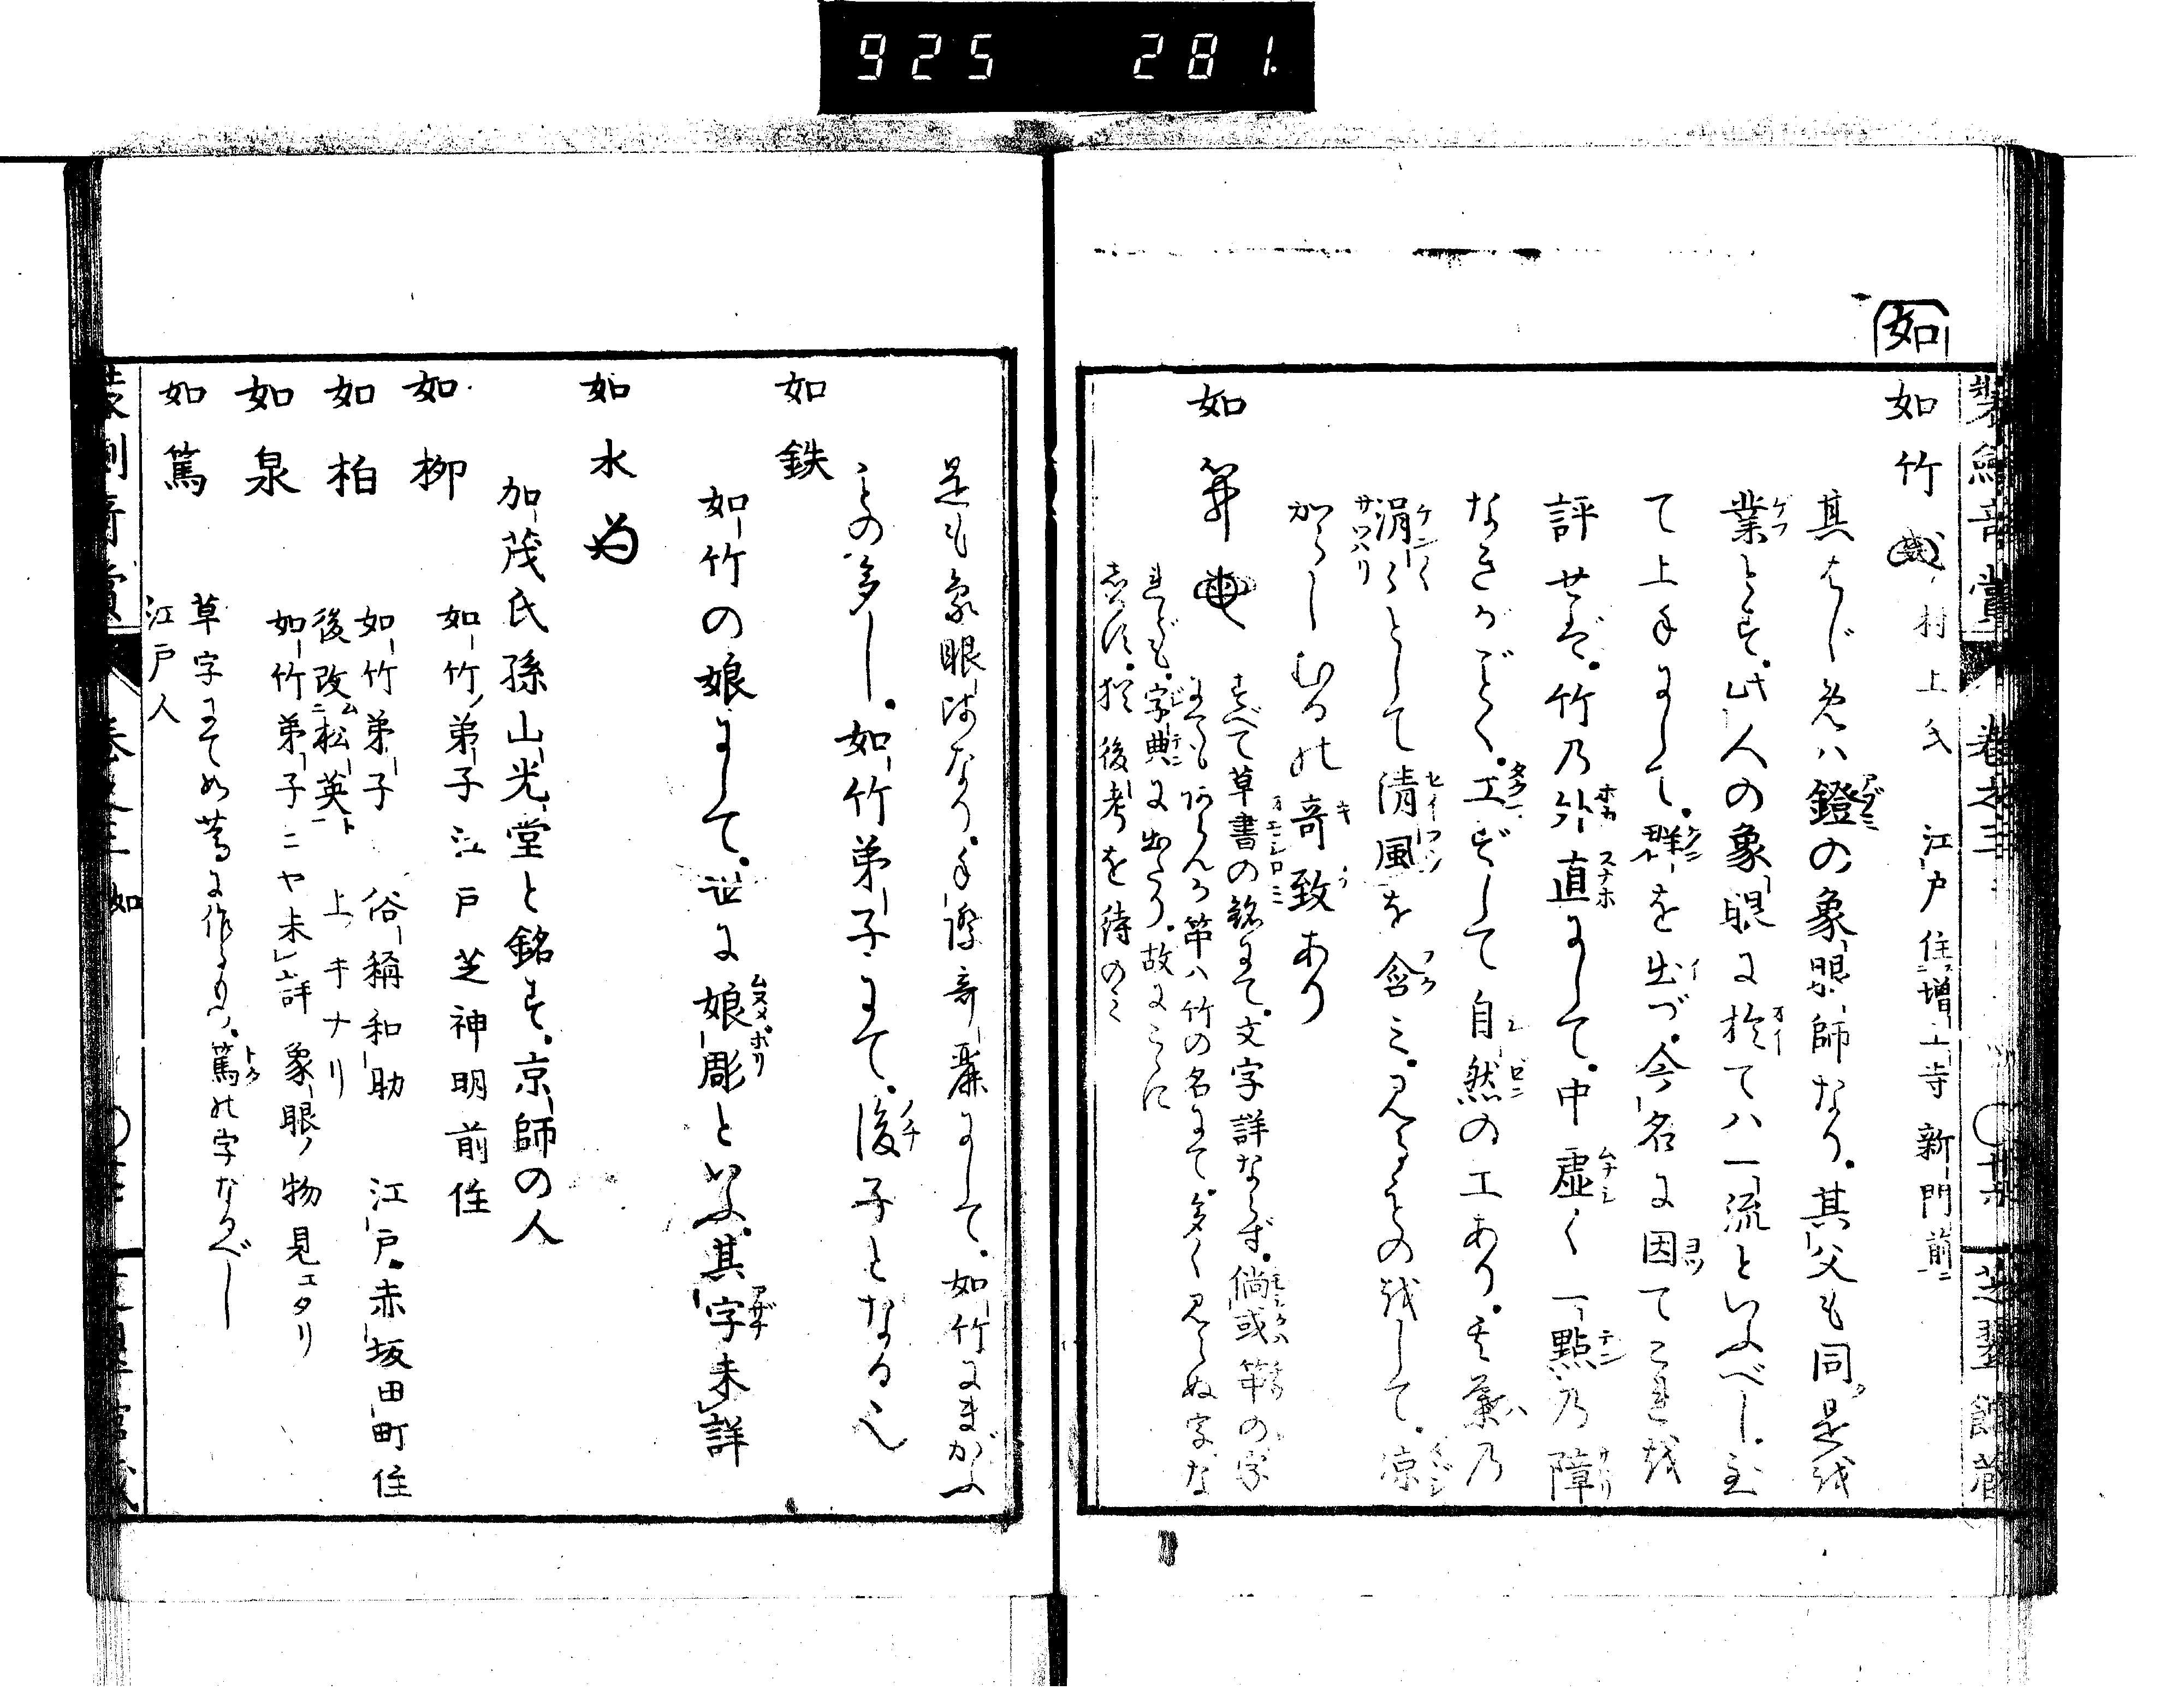 925 281
如
如竹 村上氏 江戸住増上寺新門前ニ
其はじめハ鐙の象眼師なり。其父も同。是を
業とす。此人の象眼に於てハ一流といふべし。至
て上手にして。群を出づ。今名に因てこれを
評せば。竹乃外直にして。中虚く一點乃障
なきがごとく。工ずして自然の工あり。其葉乃
涓々として清風を含み。見るもの をして。凉
からしむるの奇致あり
如笋
すべて草書の銘にて。文字詳ならず。倘或笋の字
にてもあらんか笋ハ竹の名にて。多く見らぬ字な
れども。字典に出たり。故にこゝに
志るす。猶後考を待のミ
是も象眼師なり。手際奇麗にして。如竹にまがふ
もの多し。如竹弟子にて。後子となる也
如鉄
如竹の娘にして。世に娘彫といふ。其字未詳
如水
加茂氏孫山光堂と銘す。京師の人
如柳
如竹ノ弟子江戸芝神明前住
如柏
如竹弟子 俗稱和助 江戸赤坂田町住
後改ム松英ト 上キナリ
如泉
如竹弟子ニヤ未詳 象眼ノ物見エタリ
如篤
草字にて如
に作るもの。篤の字なるべし
江戸人
装劍奇賞 巻之三 如